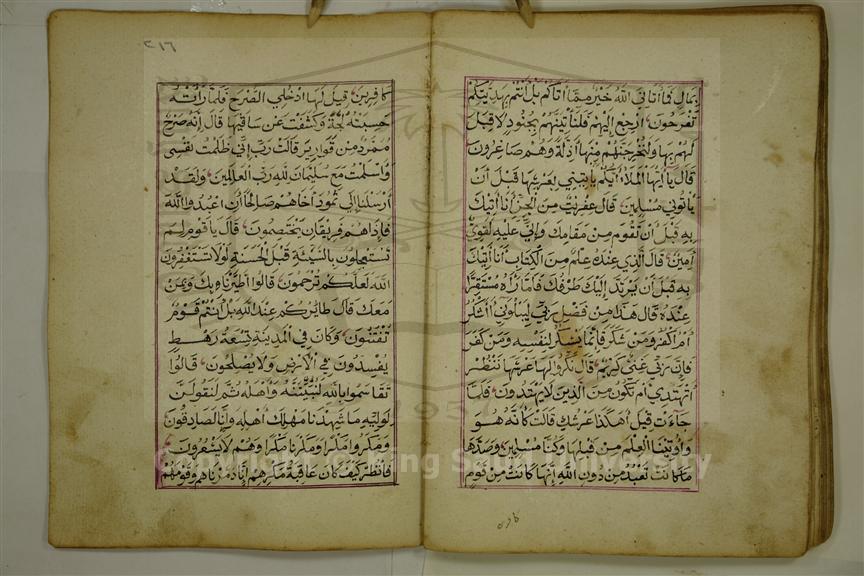 بمال فما اتاني الله خير مما اتاكم بل انتم بهديتكم
تفرحون ارجع اليهم فلنأتينهم بجنود لا قبل
لهم بها ولنخرجنهم منها اذلة وهم صاغرون
قال يا ايها الملاء ايكم ياتيني بعرشها قبل ان
يأتوني مسلمين قال عفريت من الجن أنا اتيك
به قبل أن تقوم من مقامك وإني عليه لقوي
أمين قال الذي عنده علم من الكتاب أنا اتيك
به قبل أن يرتد إليك طرفك فلما رآه مستقرا
عنده قال هذا من فضل ربي ليبلوني أأشكر
أم اكفر ومن شكر فانما يشكر لنفسه ومن كفر
فإن ربي غني كريم قال نكروا لها عرشها ننظر
اتهتدي ام تكون من الذين لا يهتدون فلما
جاءت قيل أهكذا عرشك قالت كأنه هو
واوتينا العلم من قبلها وكنا مسلمين وصدها
ما كانت تعبد من دون الله إنها كانت من قوم
كافرين
٣١٦
كافرين قيل لها ادخلي الصرح فلما رأته
حسبته لجة وكشفت عن ساقيها قال إنه صرح
ممرد من قوارير قالت رب إني ظلمت نفسي
واسلمت مع سليمان لله رب العالمين ولقد
أرسلنا إلى ثمود أخاهم صالحا أن اعبدوا الله
فإذا هم فريقان يختصمون قال يا قوم لم
تستعجلون بالسيئة قبل الحسنة لولا تستغفرون
الله لعلكم ترحمون قالوا اطيرنا بك وبمن
معك قال طائركم عند الله بل أنتم قوم
تفتنون وكان في المدينة تسعة رهط
يفسدون في الارض ولا يصلحون قالوا
تقاسموا بالله لنبيتنه وأهله ثم لنقولن
لوليه ما شهدنا مهلك أهله وإنا لصادقون
ومكروا مكرا ومكرنا مكرا وهم لا يشعرون
فانظر كيف كان عاقبة مكرهم إنا دمرناهم وقومهم
Copyright © King Saud University
1957